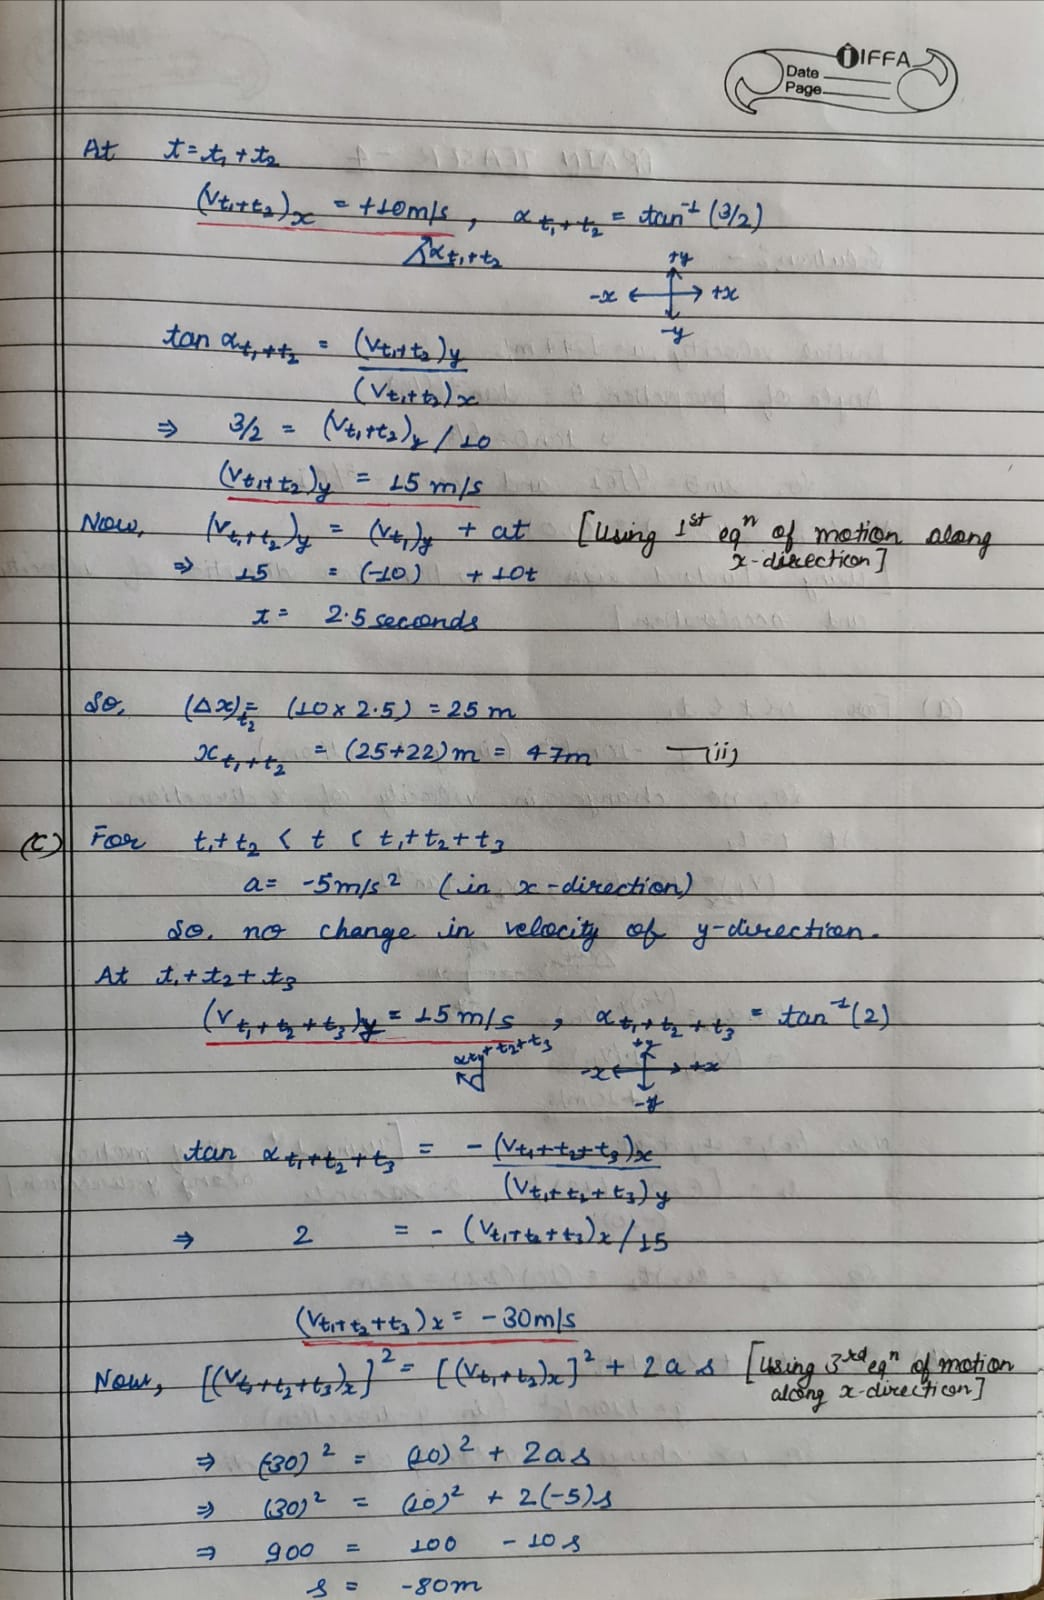 IFFA
Date
Page
At t = t₁ + t₂
(Vt₁+t₂)x = +10m/s , α t₁+t₂ = tan⁻¹(3/2)
αt₁+t₂
+y
-x +x
-y
tan αt₁+t₂ = (Vt₁+t₂)y
(Vt₁+t₂)x
⇒ 3/2 = (Vt₁+t₂)y / 10
(Vt₁+t₂)y = 15 m/s
Now, (Vt₁+t₂)y = (Vt₁)y + at [Using 1st eqn of motion along
x-direction]
⇒ 15 = (-10) + 10t
t = 2.5 seconds
So, (Δx)t₂ = (10 × 2.5) = 25 m
x t₁+t₂ = (25+22)m = 47m —(ii)
(C) For t₁+t₂ < t < t₁+t₂+t₃
a = -5m/s² (in x-direction)
So, no change in velocity of y-direction.
At t₁+t₂+t₃
(V t₁+t₂+t₃)y = 15 m/s , α t₁+t₂+t₃ = tan⁻¹(2)
αt₁+t₂+t₃
+y
-x +x
-y
tan α t₁+t₂+t₃ = - (Vt₁+t₂+t₃)x
(Vt₁+t₂+t₃)y
⇒ 2 = - (Vt₁+t₂+t₃)x/15
(Vt₁+t₂+t₃)x = -30m/s
Now, [(Vt₁+t₂+t₃)x]² = [(Vt₁+t₂)x]² + 2 a s [Using 3rd eqn of motion
along x-direction]
⇒ (-30)² = (10)² + 2as
⇒ (30)² = (10)² + 2(-5)s
⇒ 900 = 100 - 10s
s = -80m